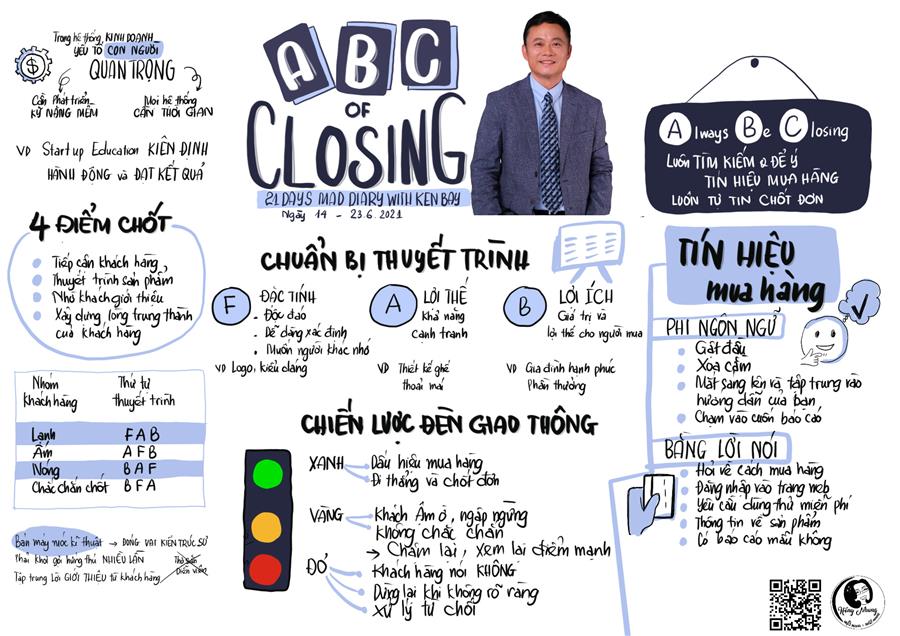 Trong hệ thống KINH DOANH
YẾU TỐ CON NGƯỜI
QUAN TRỌNG
Cần Phát triển
KỸ NĂNG MỀM
Mọi hệ thống
CẦN THỜI GIAN
VD Startup Education KIÊN ĐỊNH
HÀNH ĐỘNG và ĐẠT KẾT QUẢ
A B C
OF
CLOSING
21 DAYS MAD DIARY WITH KEN BAY
Ngày 14 - 23.6.2021
Always Be Closing
Luôn TÌM KIẾM & ĐỂ Ý
TÍN HIỆU MUA HÀNG
LUÔN TỰ TIN CHỐT ĐƠN
4 ĐIỂM CHỐT
Tiếp cận khách hàng
Thuyết trình sản phẩm
Nhờ khách giới thiệu
Xây dựng lòng trung thành
của khách hàng
Nhóm
khách hàng
Thứ tự
thuyết trình
Lạnh FAB
Ấm AFB
Nóng BAF
Chắc chắn chốt BFA
Bán máy nước kĩ thuật → ĐÓNG VAI KIẾN TRÚC SƯ
Phải khơi gợi hứng thú NHIỀU LẦN
Tập trung Lời GIỚI THIỆU từ khách hàng
CHUẨN BỊ THUYẾT TRÌNH
F
ĐẶC TÍNH
- Độc đáo
- Dễ dàng xác định
- Muốn người khác nhớ
VD Logo, kiểu dáng
A
LỢI THẾ
Khả năng
cạnh tranh
VD Thiết kế ghế
thoải mái
B
LỢI ÍCH
Giá trị và
lợi thế cho người mua
VD Gia đình hạnh phúc
Phần thưởng
CHIẾN LƯỢC ĐÈN GIAO THÔNG
XANH
Dấu hiệu mua hàng
Đi thẳng và chốt đơn
VÀNG
Khách Ậm ờ, ngập ngừng
không chắc chắn
→ Chậm lại, xem lại điểm mạnh
ĐỎ
Khách hàng nói KHÔNG
Dừng lại khi không rõ ràng
Xử lý từ chối
TÍN HIỆU
mua hàng
PHI NGÔN NGỮ
Gật đầu
Xoa cằm
Mắt sáng lên và tập trung vào
hướng dẫn của bạn
Chạm vào cuốn báo cáo
BẰNG LỜI NÓI
Hỏi về cách mua hàng
Đăng nhập vào trang web
Yêu cầu dùng thử miễn phí
Thông tin về sản phẩm
Có báo cáo mẫu không
Hồng Nhung